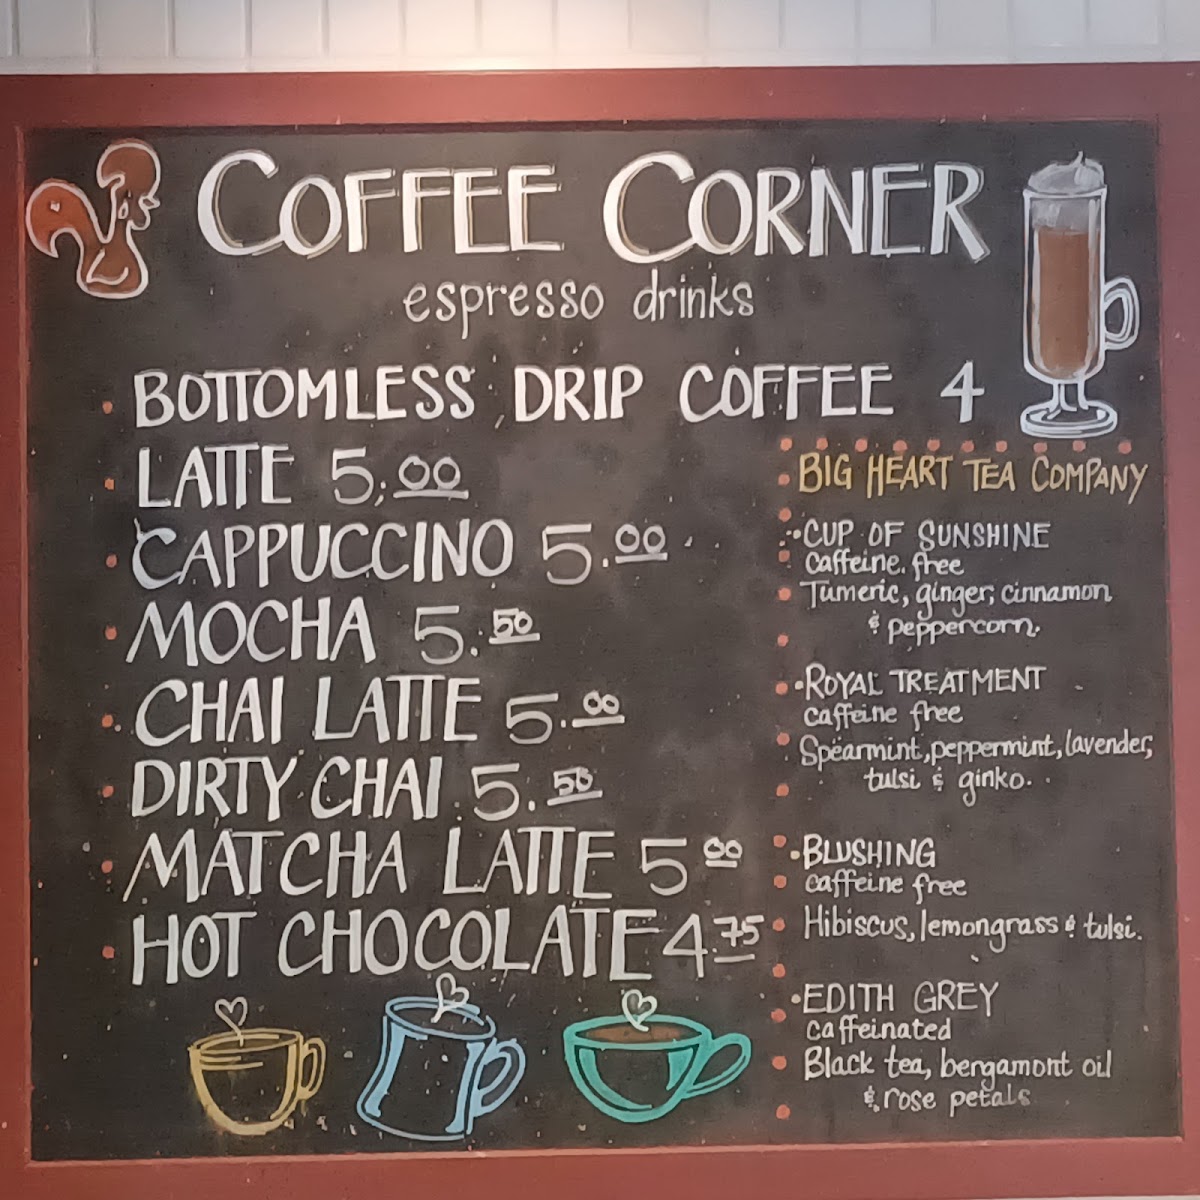 COFFEE CORNER
espresso drinks
BOTTOMLESS DRIP COFFEE 4
LATTE 5.00
CAPPUCCINO 5.00
MOCHA 5.50
CHAI LATTE 5.00
DIRTY CHAI 5.50
MATCHA LATTE 5 00
HOT CHOCOLATE 4.75
BIG HEART TEA COMPANY
CUP OF SUNSHINE
caffeine free
Tumeric, ginger, cinnamon
& peppercorn.
ROYAL TREATMENT
caffeine free
Spearmint, peppermint, lavender,
tulsi & ginko.
BLUSHING
caffeine free
Hibiscus, lemongrass & tulsi.
EDITH GREY
caffeinated
Black tea, bergamont oil
& rose petals